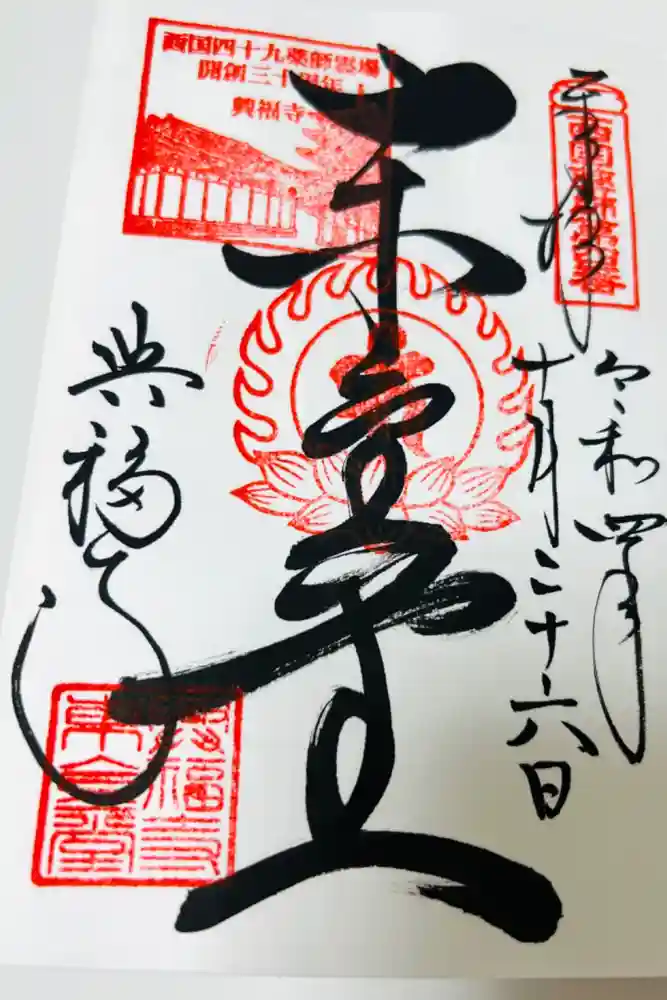 奉拝
西国薬師第四番
令和四年
十月二十六日
東金堂
西国四十九薬師霊場
開創三十周年
興福寺
興福寺
興福寺
東金堂